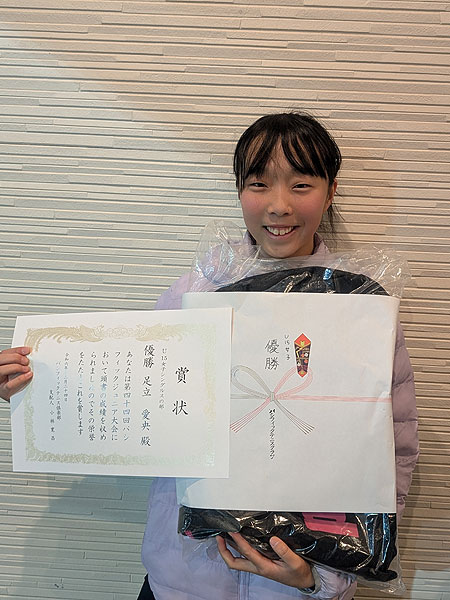 賞状
U15女子シングルスの部
優勝 足立 愛典 殿
あなたは第四十四回パシ
フィックジュニア大会に
おいて頭書の成績を収め
られましたのでその栄誉
をたたえこれを賞します
パシフィックテニス倶楽部
支配人 小林
U15女子
優勝
パシフィックテニスクラブ